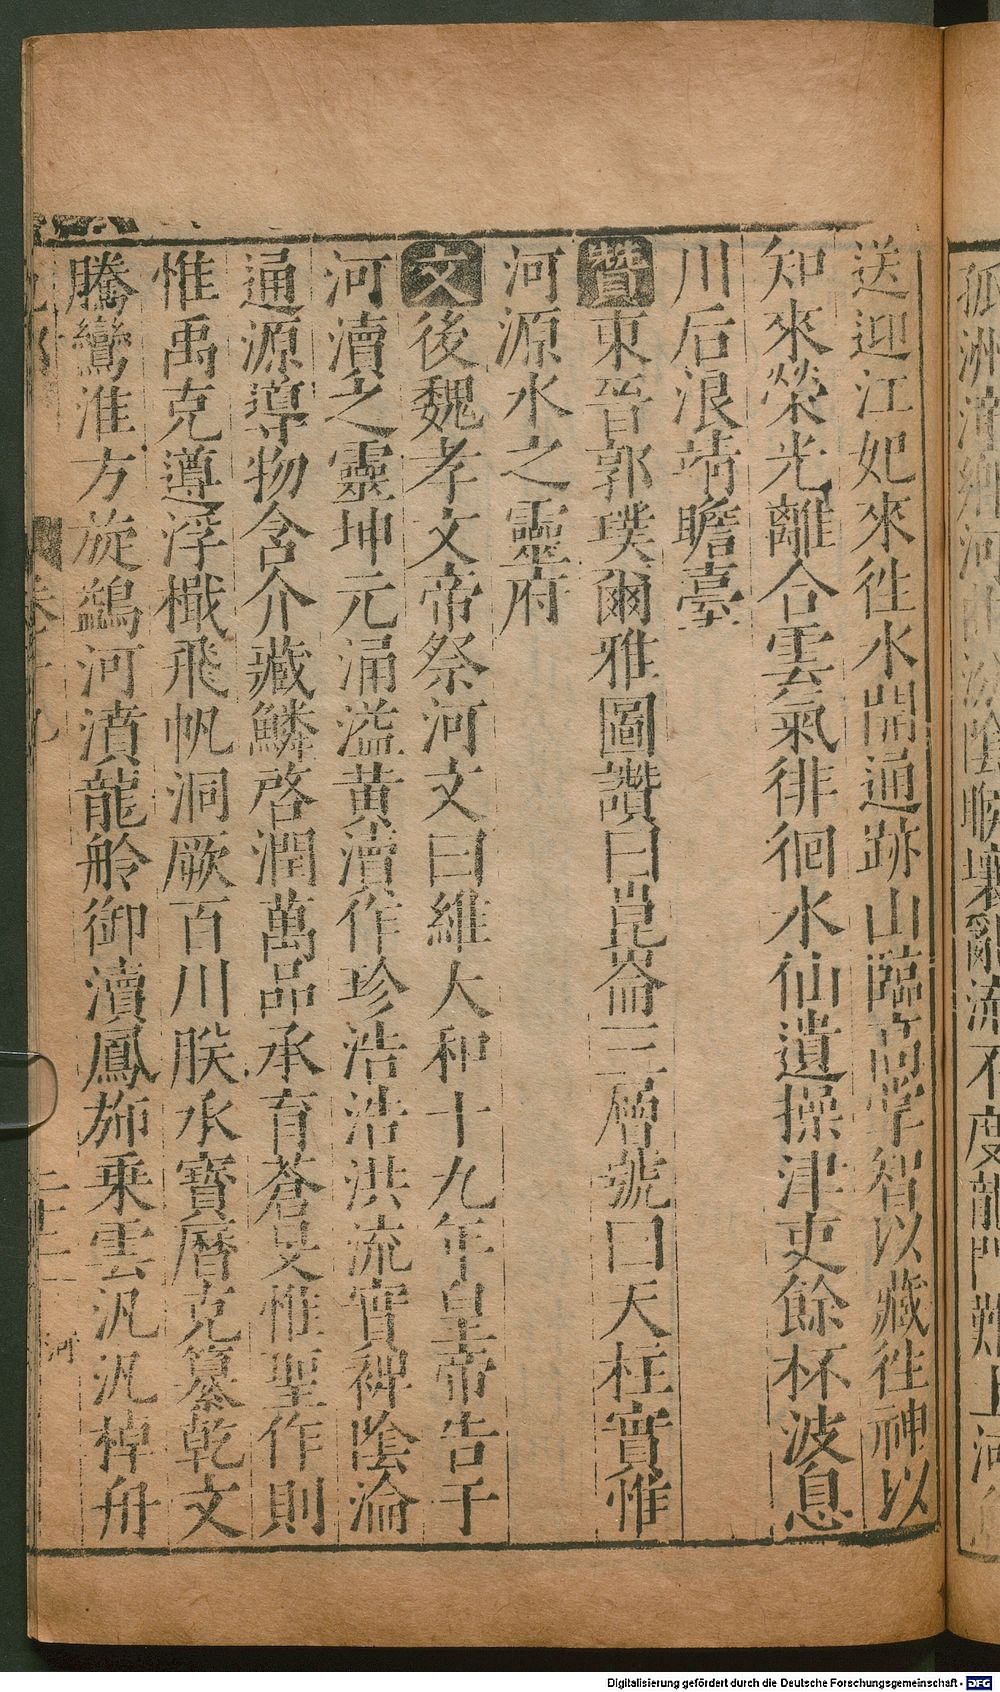 送迎江妃來往水開通跡山臨高掌智以藏往神以
知來榮光離合雲氣徘徊水仙遺操津吏餘杯波息
川后浪靖瞻臺
贊東晉郭璞爾雅圖讚曰崑崙三層號曰天柱實惟
河源水之靈府
文後魏孝文帝祭河文曰維大和十九年皇帝告于
河瀆之靈坤元涌溢黃瀆作珍浩浩洪流實裨陰淪
通源導物含介藏鱗啓潤萬品承育蒼旻惟聖作則
惟禹克遵浮檝飛帆洞厥百川朕承寶曆克纂乾文
騰鸞淮方旋鷁河濆龍舲御瀆鳳斾乗雲汎汎棹舟
卷九
二十二
河
孤洲
河
陰
壞亂流不度龍門難上河
Digitalisierung gefördert durch die Deutsche Forschungsgemeinschaft - DFG